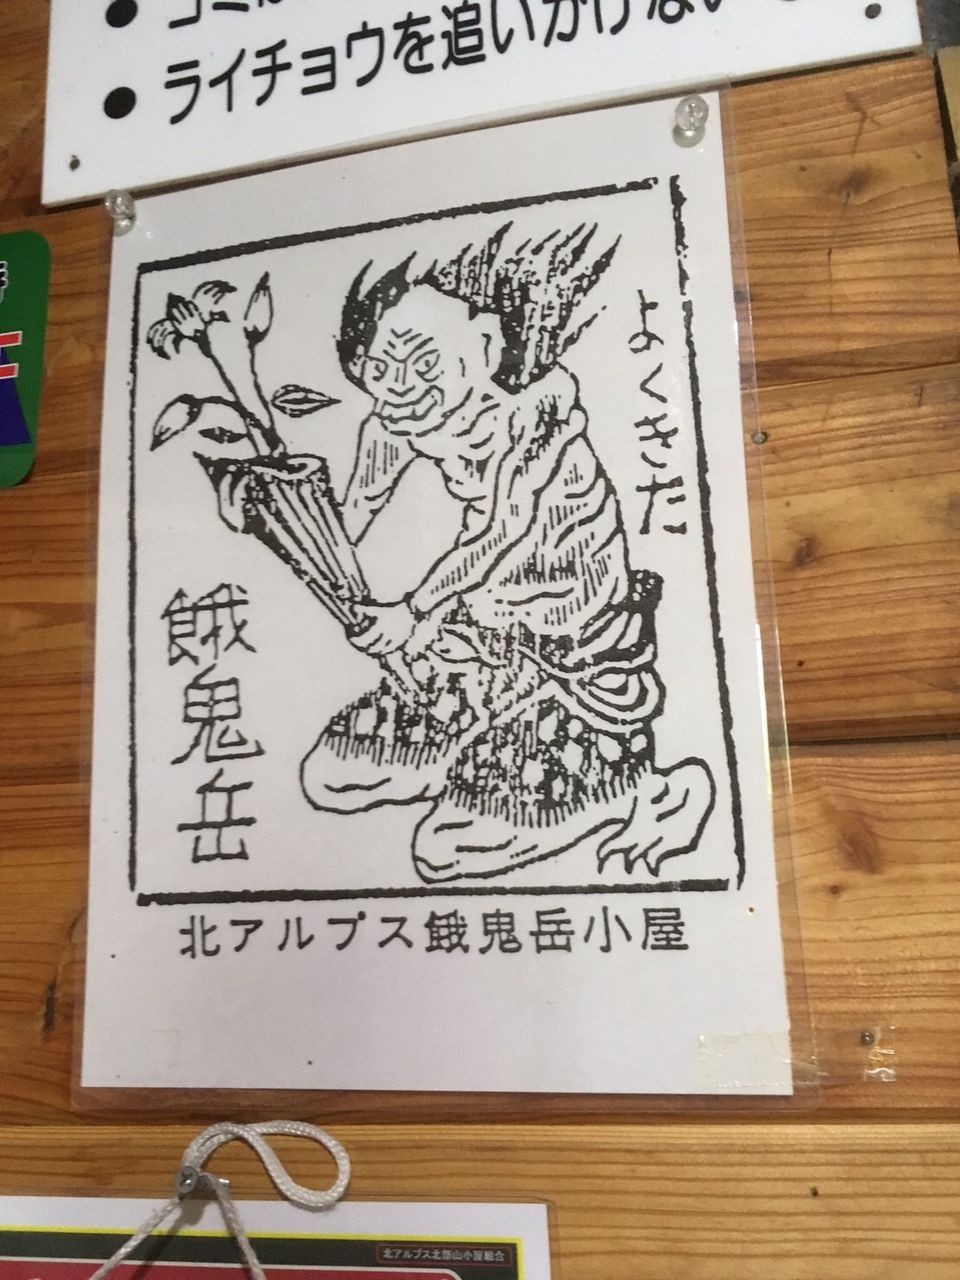 ● ライチョウを追いかけない
よくきた
餓鬼岳
北アルプス餓鬼岳小屋
北アルプス北部山小屋組合